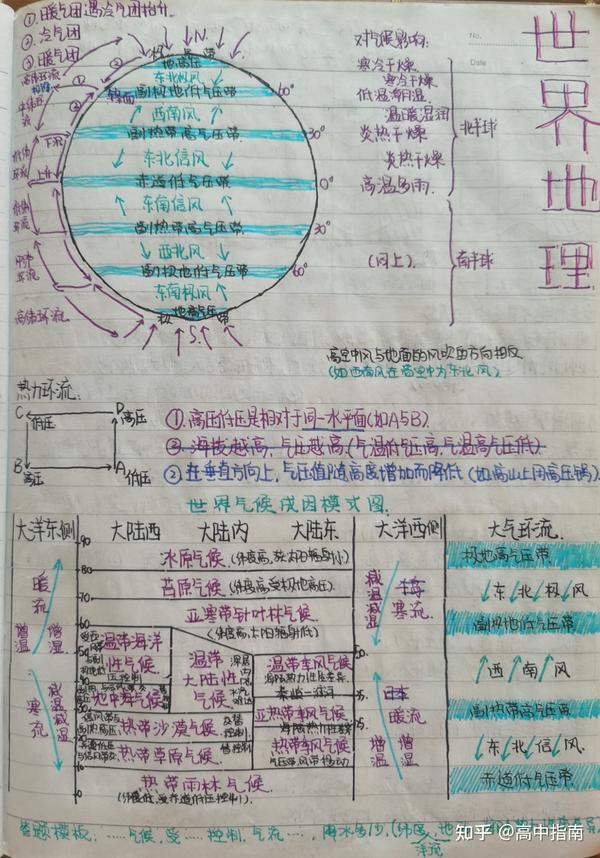 ①. 暖气团遇冷气团抬升.
②. 冷气团
③. 暖气团
No.
Date
世界地理
N.
极地高气压带
东北极风
副极地低气压带
60°
西南风
副热带高气压带
30°
东北信风
赤道低气压带
0°
东南信风
副热带高气压带
30°
西北风
副极地低气压带
60°
东南极风
极地高气压带
S.
锋面
下沉
上升
高纬环流
对气候影响:
寒冷干燥
寒冷干燥
低温
温暖湿润
炎热干燥
炎热干燥
高温多雨
北半球
(同上).
南半球
高空中风与地面的风吹的方向相反
(如西南风在高空中为东北风).
热力环流:
C
低压
D
高压
B
高压
A
低压
①. 高压低压是相对于同一水平面(如A与B).
③. 海拔越高,气压越高(气温低气压高,气温高气压低)
②. 在垂直方向上,气压值随高度增加而降低(如高山上用高压锅)
世界气候成因模式图.
大洋东侧
大陆西
大陆内
大陆东
大洋西侧
大气环流.
90
80
70
60
暖流
增温
增湿
寒流
减温
减湿
冰原气候
苔原气候(纬度高,受极地高压)
亚寒带针叶林气候
(纬度高,太阳辐射低)
温带海洋性气候
地中海气候
温带大陆性气候
深居内陆
温带季风气候
海陆热力性质差异
秦岭—淮河
亚热带季风气候
热带沙漠气候
热带草原气候
热带季风气候
热带雨林气候
(纬度低,受赤道低压控制).
减温
减湿
寒流
日本暖流
增温
增湿
极地高气压带
东北极风
副极地低气压带
西南风
副热带高气压带
东北信风
赤道低气压带
答题模板: ……气候,受……控制,气流……,降水多(少),(纬度、
洋流
知乎 @高中指南